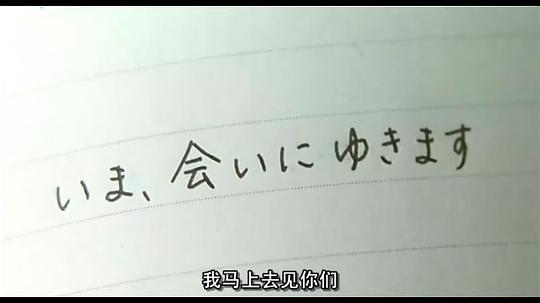 いま、会いにゆきます
我马上去见你们